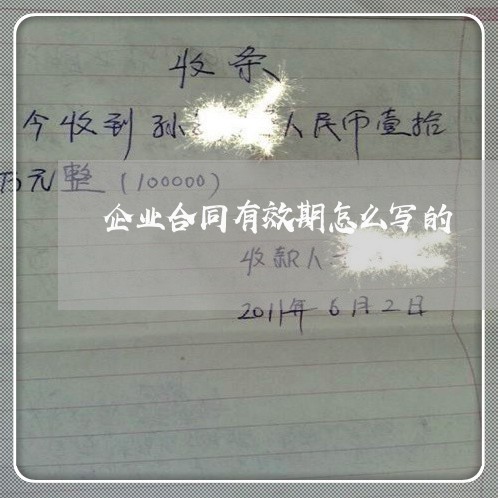 收条
今收到孙 人民币壹拾
万元整（100000）
企业合同有效期怎么写的
收款人
2011年6月2日